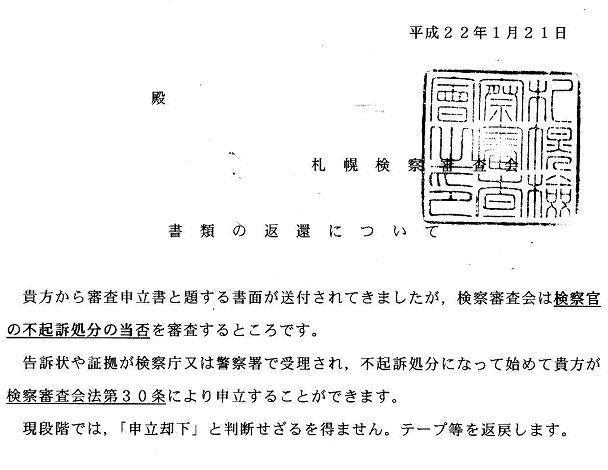 平成２２年１月２１日
殿
札幌検察審査会
書類の返還について
貴方から審査申立書と題する書面が送付されてきましたが，検察審査会は検察官
の不起訴処分の当否を審査するところです。
告訴状や証拠が検察庁又は警察署で受理され，不起訴処分になって始めて貴方が
検察審査会法第３０条により申立することができます。
現段階では，「申立却下」と判断せざるを得ません。テープ等を返戻します。
札幌検察審査会之印